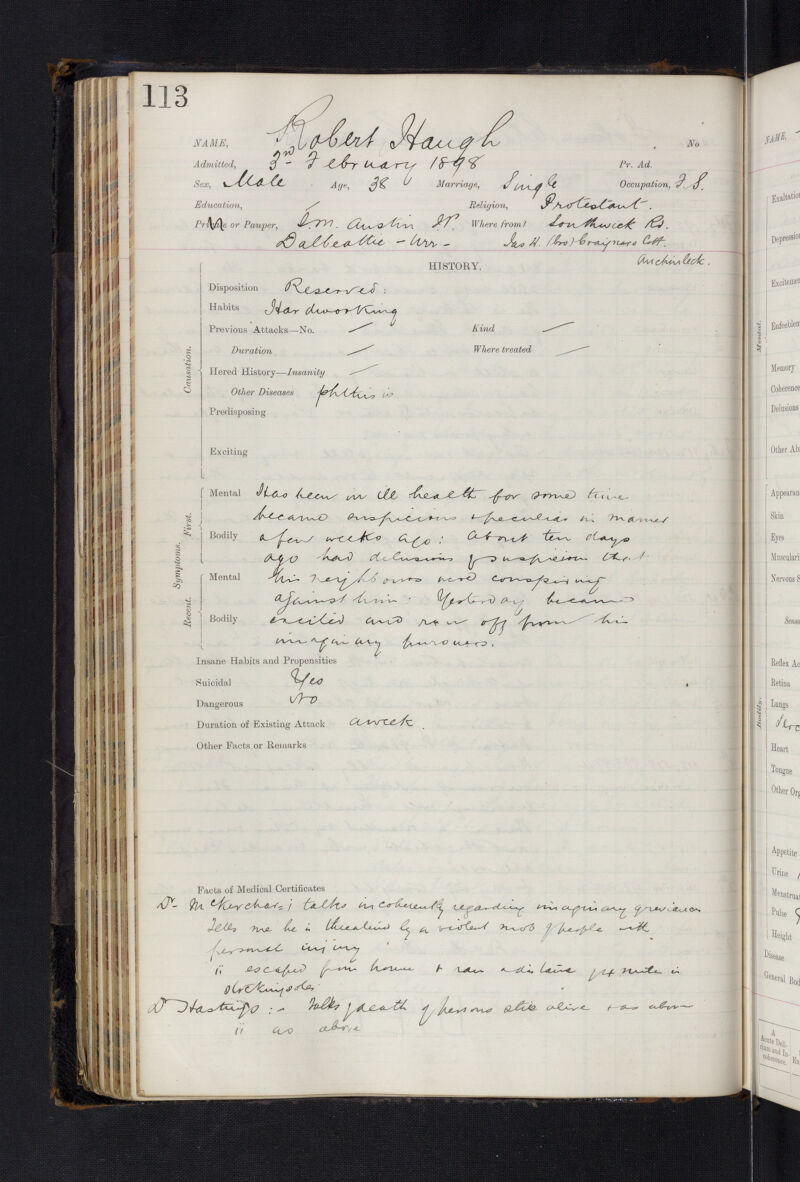 113
NAME, Robert Haugh No
Admitted, 3rd February 1898 Pr. Ad.
Sex, Male Age, 38 Marriage, Single Occupation, F. S.
Education, — Religion, Protestant.
Private or Pauper, I.M. Austin Where from? Southwick Rd.
Dalbeattie - Urr - Jas H. (bro) Craignare Cott.
Auchinleck.
HISTORY.
Causation.
Disposition Reserved:
Habits Hardworking
Previous Attacks—No. — Kind —
Duration — Where treated —
Hered History—Insanity —
Other Diseases phthisis
Predisposing
Exciting
Symptoms.
First.
Mental Has been in ill health for some time
became suspicious & peculiar in manner
Bodily a few weeks ago: About ten days
ago had delusions of suspicion that
Recent.
Mental his neighbours were conspiring
against him. Yesterday became
Bodily excited and ran off from his
imaginary pursuers.
Insane Habits and Propensities
Suicidal Yes
Dangerous No
Duration of Existing Attack a week.
Other Facts or Remarks
Facts of Medical Certificates
Dr McKerchar: i talks incoherently regarding imaginary grievances
Tells me he is threatened by a violent mob of people with
personal injury
ii escaped from home & ran a distance of miles in
stocking soles
Dr Hastings :- Talks of death of persons still alive & as above
ii as above
NAME,
Exaltation
Depression
Excitemen
Enfeeblem
Mental.
Memory
Coherence
Delusions
Other Ab
Appearan
Skin
Eyes
Musculari
Nervous S
Reflex Ac
Retina
Bodily.
Lungs
Heart
Tongue
Other Org
Appetite
Urine
Menstrua
Pulse
Height
Disease
General Bod
A
Acute Deli-
rium and In-
coherence.